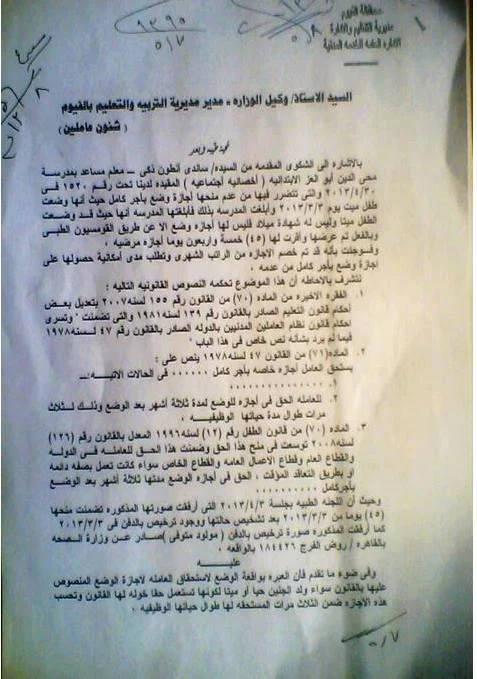 محافظة الفيوم
مديرية التنظيم والادارة
الاداره العامه للخدمه المدنية
١٣٩٥
٥/٧
٥/٨
السيد الاستاذ/ وكيل الوزاره - مدير مديرية التربيه والتعليم بالفيوم
( شئون عاملين )
تحيه طيبه وبعد
بالاشاره الى الشكوى المقدمه من السيده/ ساندى أنطون ذكى – معلم مساعد بمدرسة
محى الدين أبو العز الابتدائيه ( أخصائيه اجتماعيه ) المقيده لدينا تحت رقم ١٥٢٠ فى
٢٠١٣/٤/٣٠ والتى تتضرر فيها من عدم منحها أجازة وضع بأجر كامل حيث أنها وضعت
طفل ميت يوم ٢٠١٣/٣/٣ وأبلغت المدرسه بذلك فأبلغتها المدرسه أنها حيث قد وضعت
الطفل ميتا وليس له شهادة ميلاد فليس لها أجازه وضع الا عن طريق القومسيون الطبى
وبالفعل تم عرضها وأقرت لها (٤٥) خمسة واربعون يوما أجازه مرضيه .
وفوجئت بأنه قد تم خصم الأجازه من الراتب الشهرى وتطلب مدى أمكانية حصولها على
اجازة وضع بأجر كامل من عدمه .
نتشرف بالاحاطه أن هذا الموضوع تحكمه النصوص القانونيه التاليه :
١. الفقره الاخيره من الماده (٧٠) من القانون ١٥٥ لسنه٢٠٠٧ بتعديل بعض
أحكام قانون التعليم الصادر بالقانون ١٣٩ لسنه١٩٨١ والتى تضمنت " وتسرى
أحكام قانون نظام العاملين المدنيين بالدوله الصادر بالقانون رقم ٤٧ لسنه١٩٧٨
فيما لم يرد بشأنه نص خاص فى هذا الباب "
٢. الماده(٧١) من القانون ٤٧ لسنه١٩٧٨ ينص على :
يستحق العامل أجازه خاصه بأجر كامل ٠٠٠٠٠٠ فى الحالات الاتيه :
١. ٠٠٠٠٠٠٠٠٠٠٠٠
٢. للعامله الحق فى أجازه للوضع لمدة ثلاثة أشهر بعد الوضع وذلك لثلاث
مرات طوال مدة حياتها الوظيفيه .
٣. الماده (٧٠) من قانون الطفل رقم (١٢) لسنه١٩٩٦ المعدل بالقانون رقم (١٢٦)
لسنه٢٠٠٨ توسعت فى منح هذا الحق وضمنت هذا الحق للعامله فى الدوله
والقطاع العام وقطاع الاعمال العامه والقطاع الخاص سواء كانت تعمل بصفه دائمه
او بطريق التعاقد المؤقت ، الحق فى أجازه الوضع مدتها ثلاثة أشهر بعد الوضع
بأجركامل ٠٠٠٠٠٠
وحيث أن اللجنه الطبيه بجلسة ٢٠١٣/٤/٣ التى أرفقت صورتها المذكوره تضمنت منحها
(٤٥) يوما من ٢٠١٣/٣/٣ بعد تشخيص حالتها ووجود ترخيص بالدفن فى ٢٠١٣/٣/٣
كما أرفقت المذكوره صورة ترخيص بالدفن ( مولود متوفى ) صادر عن وزارة الصحه
بالقاهره / روض الفرج ١٨٤٤٢٦ بالواقعه .
عليــــه
وفى ضوء ما تقدم فأن العبره بواقعة الوضع لاستحقاق العامله لاجازة الوضع المنصوص
عليها بالقانون سواء ولد الجنين حيا أو ميتا لكونها تستعمل حقا خوله لها القانون وتحسب
هذه الأجازه ضمن الثلاث مرات المستحقه لها طوال حياتها الوظيفيه .
٥/٧